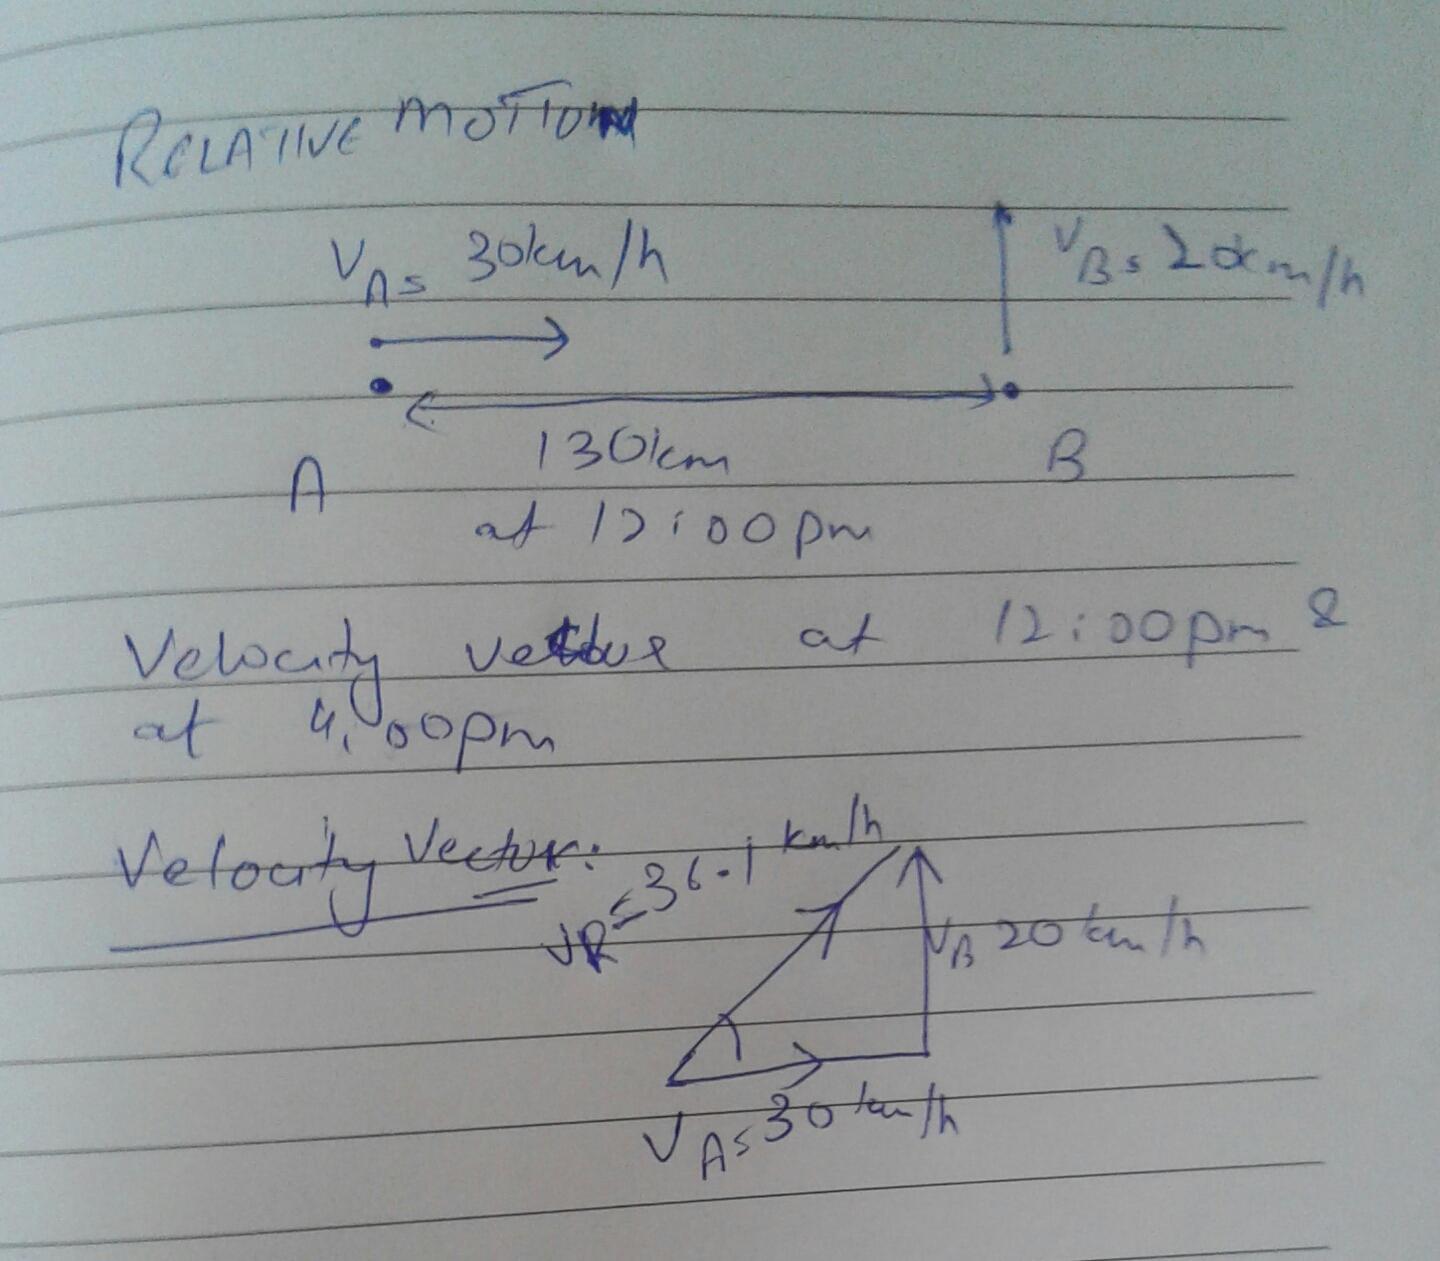 RELATIVE MOTION
VA = 30km/h
VB = 20km/h
130km
A
B
at 12:00pm
Velocity at 12:00pm &
at 4:00pm
Velocity Vector:
VR = 36.1 km/h
VB 20 km/h
VA = 30 km/h